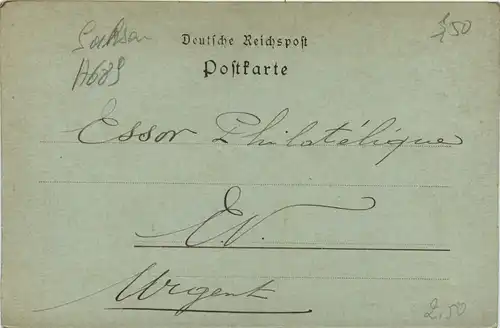 Sachsen
A689
Deutsche Reichspost
Postkarte
Essor Philatélique
E.V.
Urgent
2,50